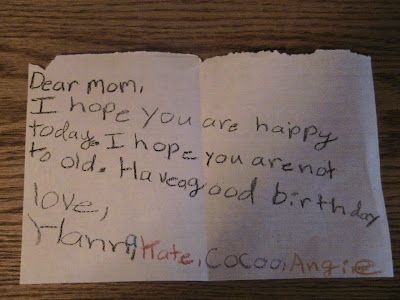 Dear mom,
I hope you are happy
today. I hope you are not
to old. Have a good birthday
love,
Hanna, Kate, Cocoa, Angie